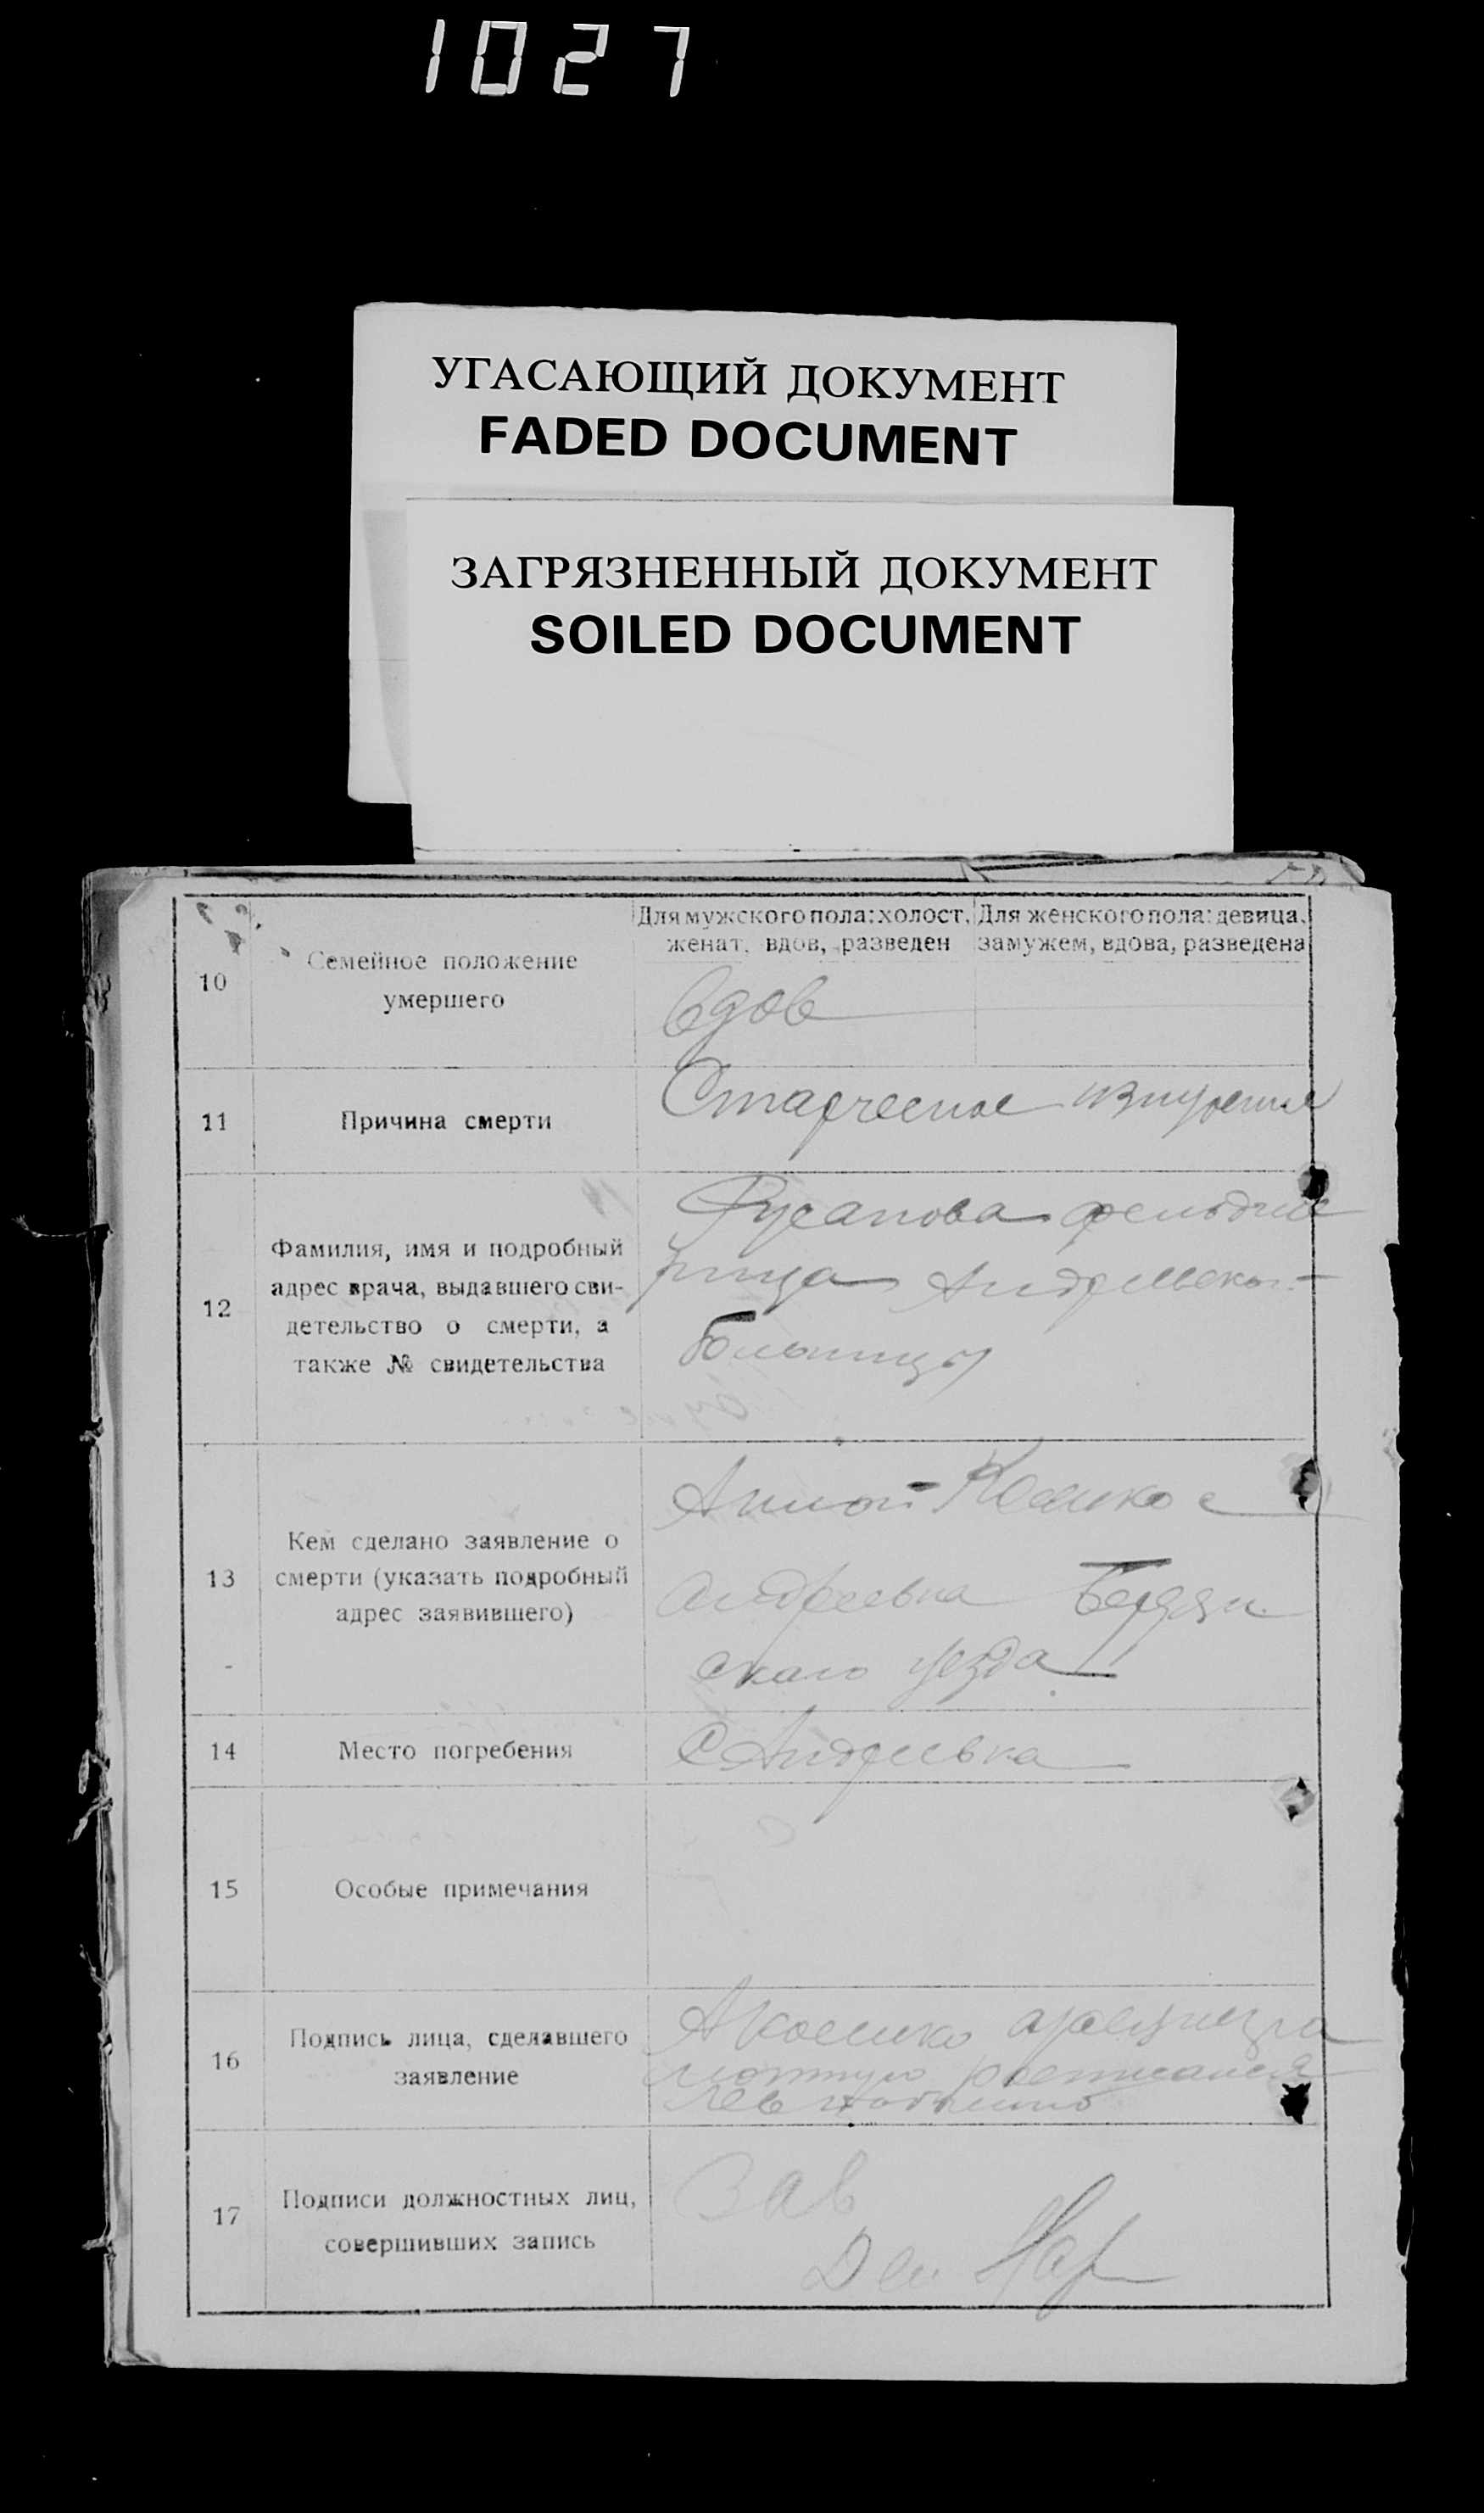 1027
УГАСАЮЩИЙ ДОКУМЕНТ
FADED DOCUMENT
ЗАГРЯЗНЕННЫЙ ДОКУМЕНТ
SOILED DOCUMENT
10
Семейное положение
умершего
Для мужского пола: холост,
женат, вдов, разведен
Для женского пола: девица,
замужем, вдова, разведена
Вдов
11
Причина смерти
Старческое изнурение
12
Фамилия, имя и подробный
адрес врача, выдавшего сви-
детельство о смерти, а
также № свидетельства
Русанова
Больницы
13
Кем сделано заявление о
смерти (указать подробный
адрес заявившего)
Анной с
Андреевка Бердян
скаго уезда
14
Место погребения
С Андреевка
15
Особые примечания
16
Подпись лица, сделавшего
заявление
А
17
Подписи должностных лиц,
совершивших запись
Зав